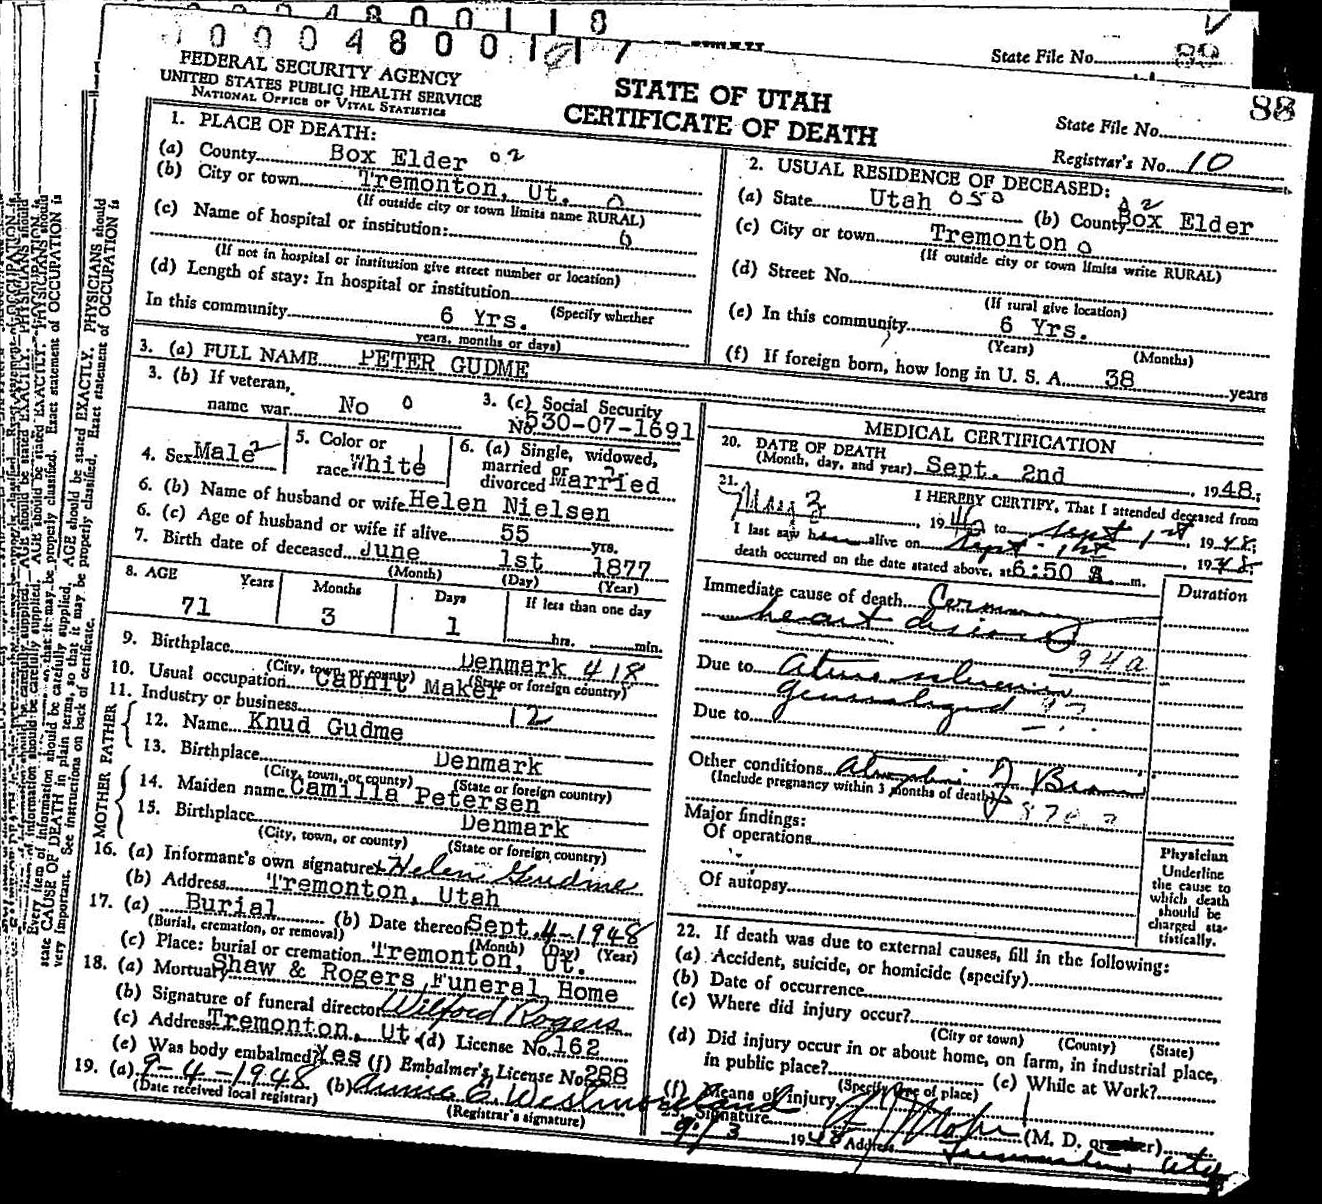 0 0 0 4 8 0 0 1 1 8
State File No. 89
0 0 0 4 8 0 0 1 1 7
FEDERAL SECURITY AGENCY
UNITED STATES PUBLIC HEALTH SERVICE
NATIONAL OFFICE OF VITAL STATISTICS
STATE OF UTAH
CERTIFICATE OF DEATH
88
State File No.
Registrar's No. 10
1. PLACE OF DEATH:
(a) County Box Elder 02
(b) City or town Tremonton, Ut. 0
(If outside city or town limits name RURAL)
(c) Name of hospital or institution:
6
(If not in hospital or institution give street number or location)
(d) Length of stay: In hospital or institution
(Specify whether
In this community 6 Yrs.
years, months or days)
2. USUAL RESIDENCE OF DECEASED:
(a) State Utah 050 (b) County Box Elder
(c) City or town Tremonton 0
(If outside city or town limits write RURAL)
(d) Street No.
(If rural give location)
(e) In this community 6 Yrs.
(Years) (Months)
(f) If foreign born, how long in U. S. A. 38 years
3. (a) FULL NAME PETER GUDME
3. (b) If veteran, name war No 0
3. (c) Social Security No. 530-07-1691
4. Sex Male 5. Color or race White 6. (a) Single, widowed, married or divorced Married
6. (b) Name of husband or wife Helen Nielsen
6. (c) Age of husband or wife if alive 55 yrs.
7. Birth date of deceased June 1st 1877
(Month) (Day) (Year)
8. AGE Years Months Days If less than one day
71 3 1 hrs. min.
9. Birthplace Denmark 418
(City, town, or county) (State or foreign country)
10. Usual occupation Cabnit Maker
11. Industry or business 12
FATHER
12. Name Knud Gudme
13. Birthplace Denmark
(City, town, or county) (State or foreign country)
MOTHER
14. Maiden name Camilla Petersen
15. Birthplace Denmark
(City, town, or county) (State or foreign country)
16. (a) Informant's own signature Helen Gudme
(b) Address Tremonton, Utah
17. (a) Burial (b) Date thereof Sept. 4-1948
(Burial, cremation, or removal) (Month) (Day) (Year)
(c) Place: burial or cremation Tremonton, Ut.
18. (a) Mortuary Shaw & Rogers Funeral Home
(b) Signature of funeral director Wilford Rogers
(c) Address Tremonton, Ut. (d) License No. 162
(e) Was body embalmed? Yes (f) Embalmer's License No. 288
19. (a) 9-4-1948 (b) Annie C. Westmoreland
(Date received local registrar) (Registrar's signature)
MEDICAL CERTIFICATION
20. DATE OF DEATH
(Month, day, and year) Sept. 2nd, 1948;
21. I HEREBY CERTIFY, That I attended deceased from
May 3, 1946 to Sept 1st 1948;
I last saw him alive on Sept. 1st 1948;
death occurred on the date stated above, at 6:50 A. m.
Duration
Immediate cause of death Coronary
heart disease
94a
Due to
Due to
Other conditions of Brain
(Include pregnancy within 3 months of death)
Major findings:
Of operations
Of autopsy
Physician
Underline
the cause to
which death
should be
charged sta-
tistically.
22. If death was due to external causes, fill in the following:
(a) Accident, suicide, or homicide (specify)
(b) Date of occurrence
(c) Where did injury occur?
(City or town) (County) (State)
(d) Did injury occur in or about home, on farm, in industrial place,
in public place? (e) While at Work?
(Specify type of place)
(f) Means of injury
23. Signature (M. D. or other)
9/3 1948 Address Tremonton Utah
Every item of information should be carefully supplied. AGE should be stated EXACTLY. PHYSICIANS should
state CAUSE OF DEATH in plain terms, so that it may be properly classified. Exact statement of OCCUPATION is
very important. See instructions on back of certificate.